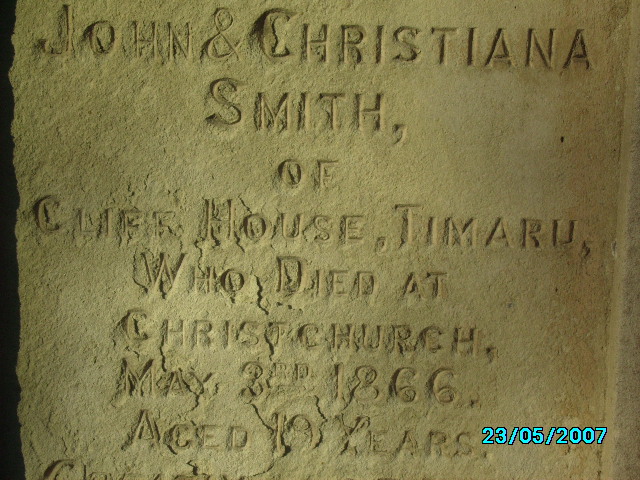 JOHN & CHRISTIANA
SMITH,
OF
CLIFF HOUSE, TIMARU,
WHO DIED AT
CHRISTCHURCH,
MAY 3RD 1866.
AGED 19 YEARS.
23/05/2007